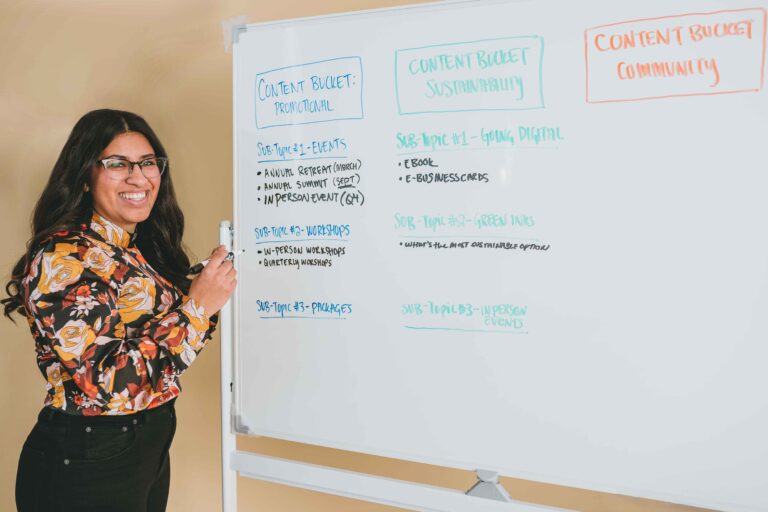 CONTENT BUCKET:
PROMOTIONAL
SUB-TOPIC #1 - EVENTS
• ANNUAL RETREAT (MARCH)
• ANNUAL SUMMIT (SEPT)
• IN PERSON EVENT (Q4)
SUB-TOPIC #2 - WORKSHOPS
• IN-PERSON WORKSHOPS
• QUARTERLY WORSHOPS
SUB-TOPIC #3 - PACKAGES
CONTENT BUCKET
SUSTAINABILITY
SUB-TOPIC #1 - GOING DIGITAL
• EBOOK
• E-BUSINESS CARDS
SUB-TOPIC #2 - GREEN INKS
• WHAT'S THE MOST SUSTAINABLE OPTION
SUB-TOPIC #3 - IN PERSON
EVENTS
CONTENT BUCKET
COMMUNITY